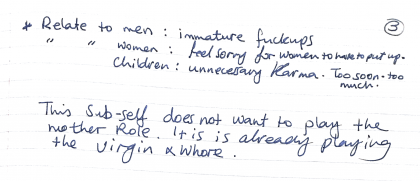 ③
* Relate to men : immature fuckups
" " women : feel sorry for women to have to put up.
Children : unnecessary Karma. Too soon. too
much.
This Sub-self does not want to play the
mother Role. It is is already playing
the virgin & whore.